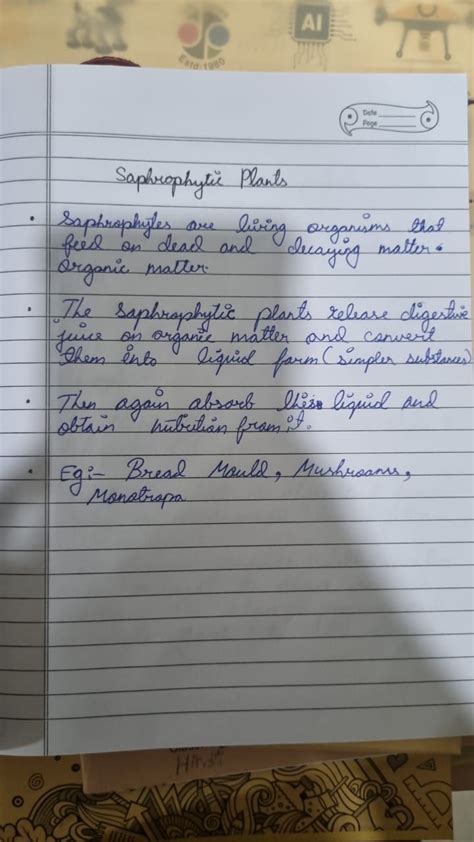 AI
Estd-1980
Date
Page
Saphrophytic Plants
• Saphrophytes are living organisms that
feed on dead and decaying matter.
Organic matter.
• The Saphrophytic plants release digestive
juice on organic matter and convert
them into liquid form (simpler substances)
• Then again absorb this liquid and
obtain nutrition from it.
• Eg:- Bread Mould, Mushrooms,
Monotropa